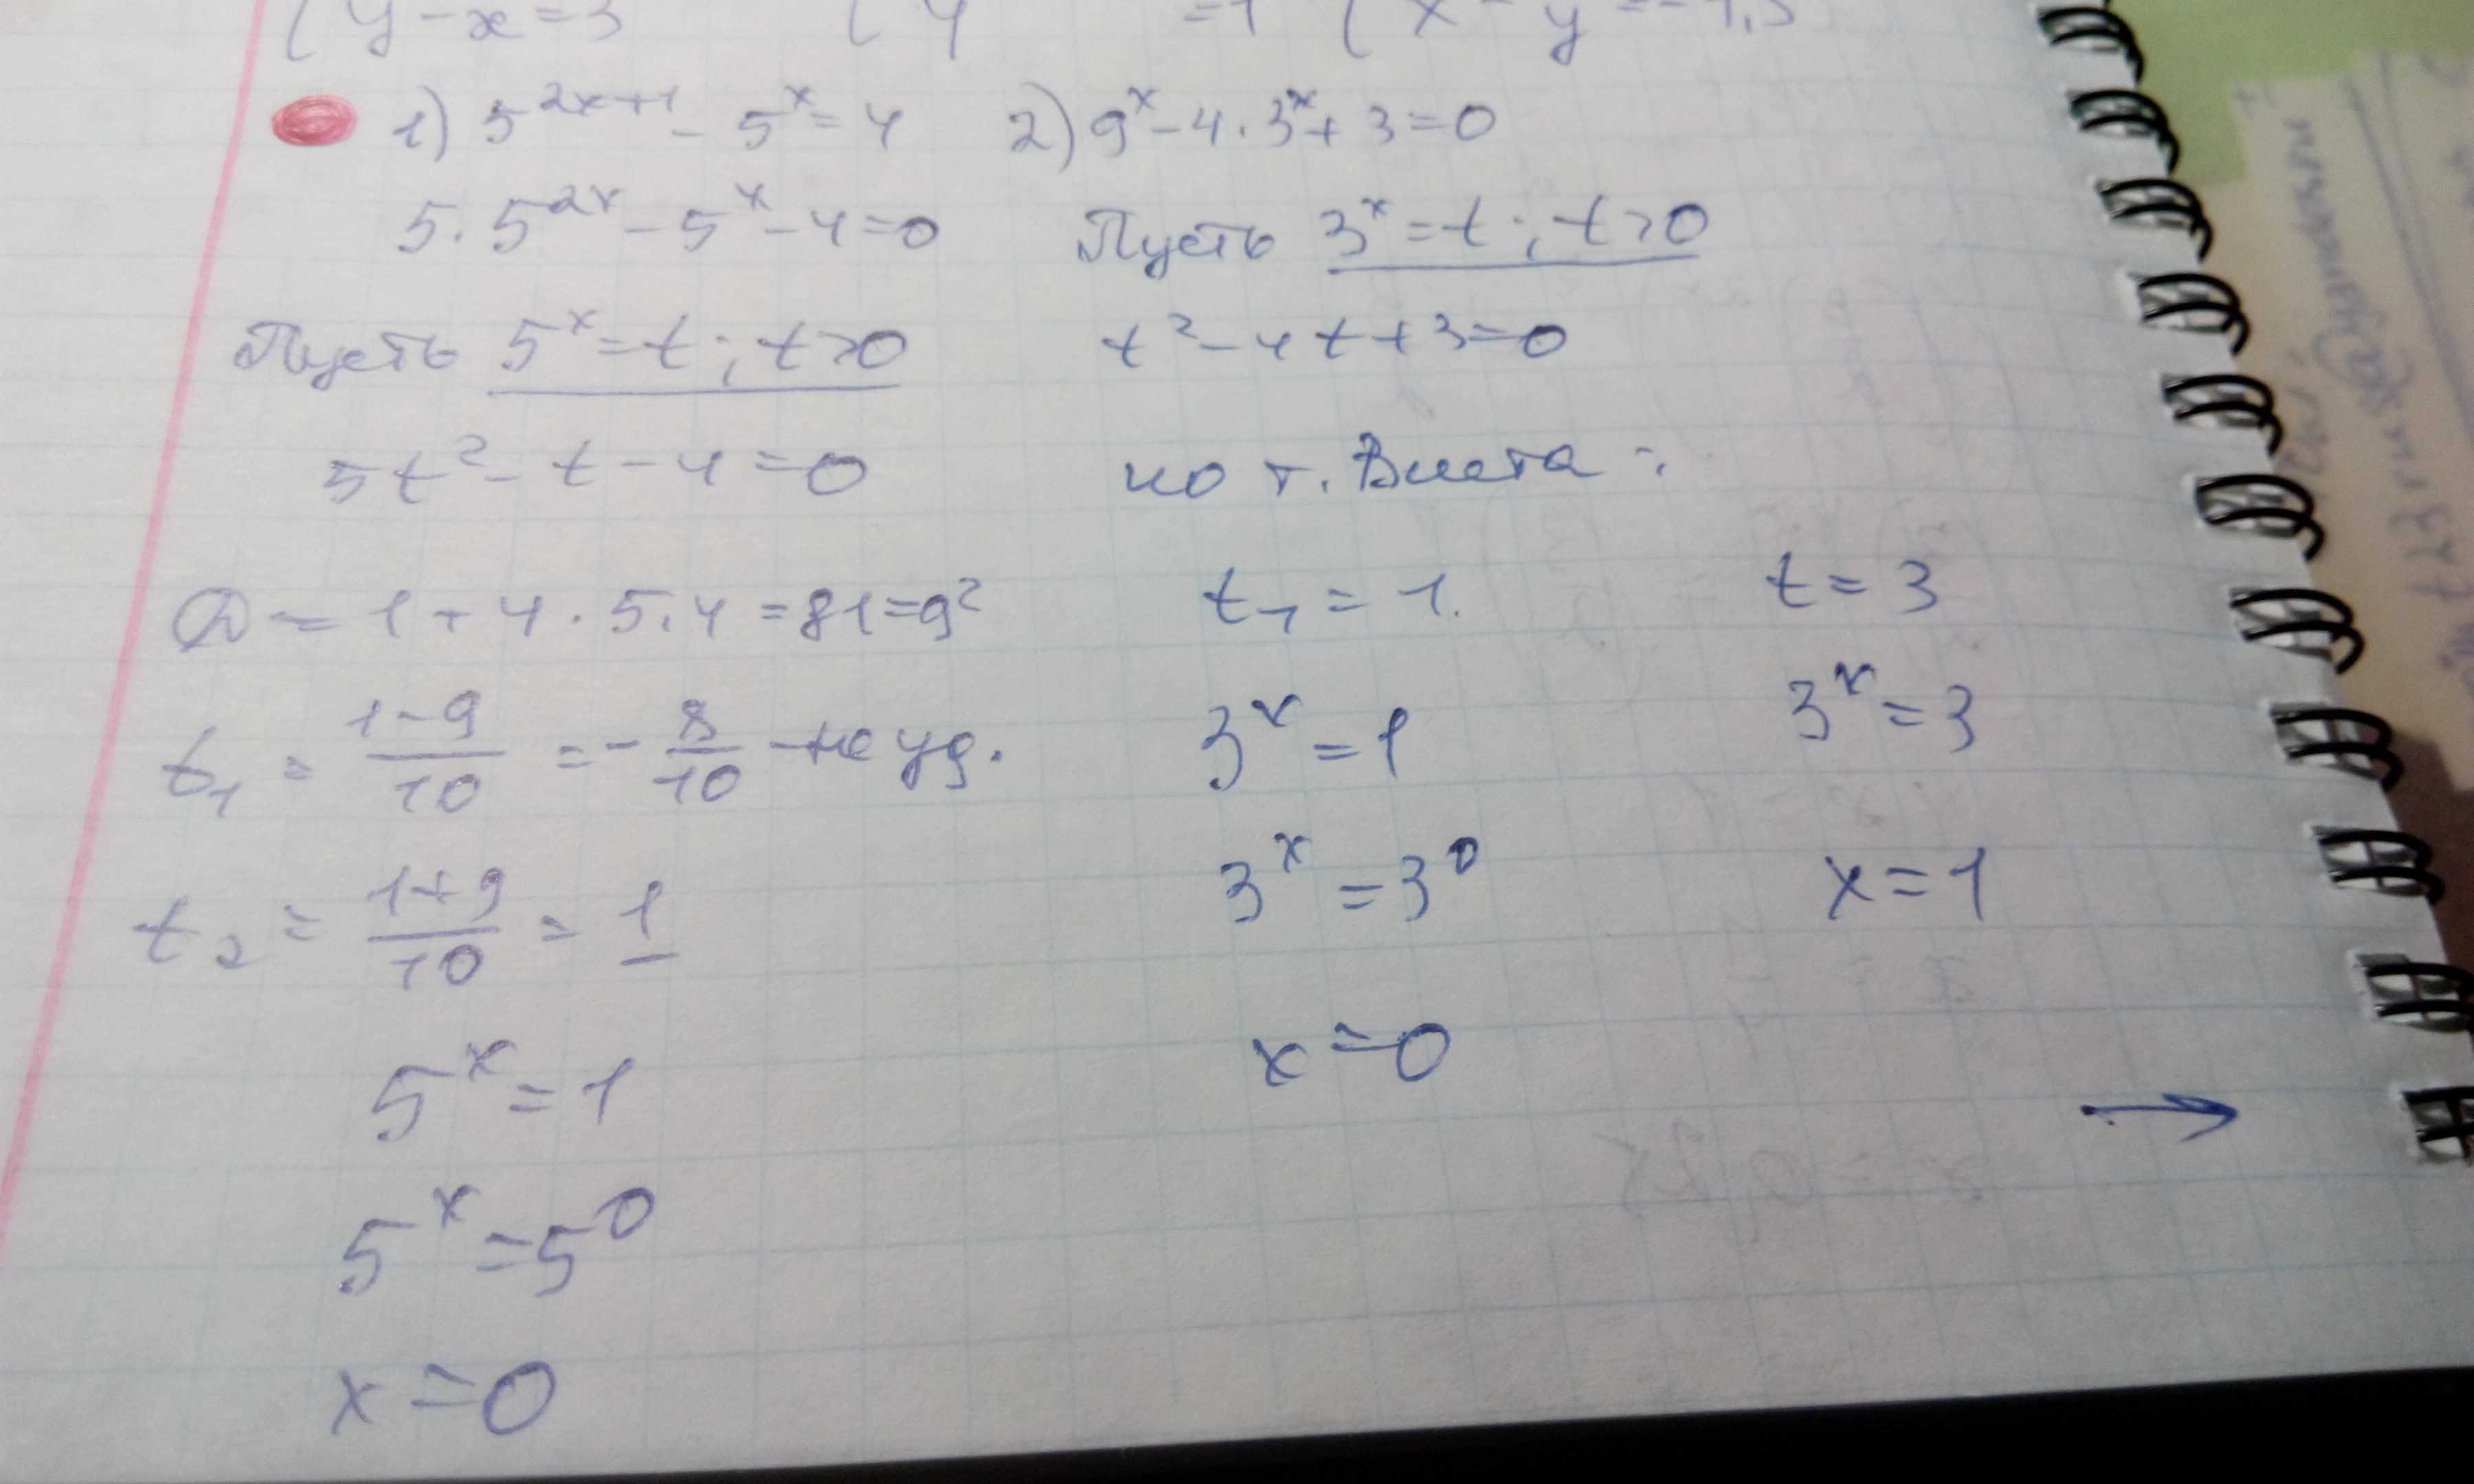 y - x = 3
1) 5^{2x+1} - 5^x = 4
5 · 5^{2x} - 5^x - 4 = 0
Пусть 5^x = t ; t > 0
5t² - t - 4 = 0
D = 1 + 4 · 5 · 4 = 81 = 9²
t₁ = \frac{1-9}{10} = - \frac{8}{10} - не уд.
t₂ = \frac{1+9}{10} = 1
5^x = 1
5^x = 5^0
x = 0
2) 9^x - 4 · 3^x + 3 = 0
Пусть 3^x = t ; t > 0
t² - 4t + 3 = 0
по т. Виета :
t₁ = 1.
3^x = 1
3^x = 3^0
x = 0
t = 3
3^x = 3
x = 1
→